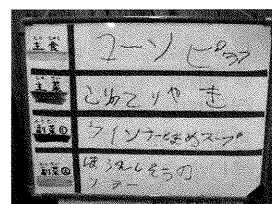 主食 コーンピラフ
主菜 とりてりやき
副菜① ウインナーとまめスープ
副菜② ほうれんそうの
ソテー